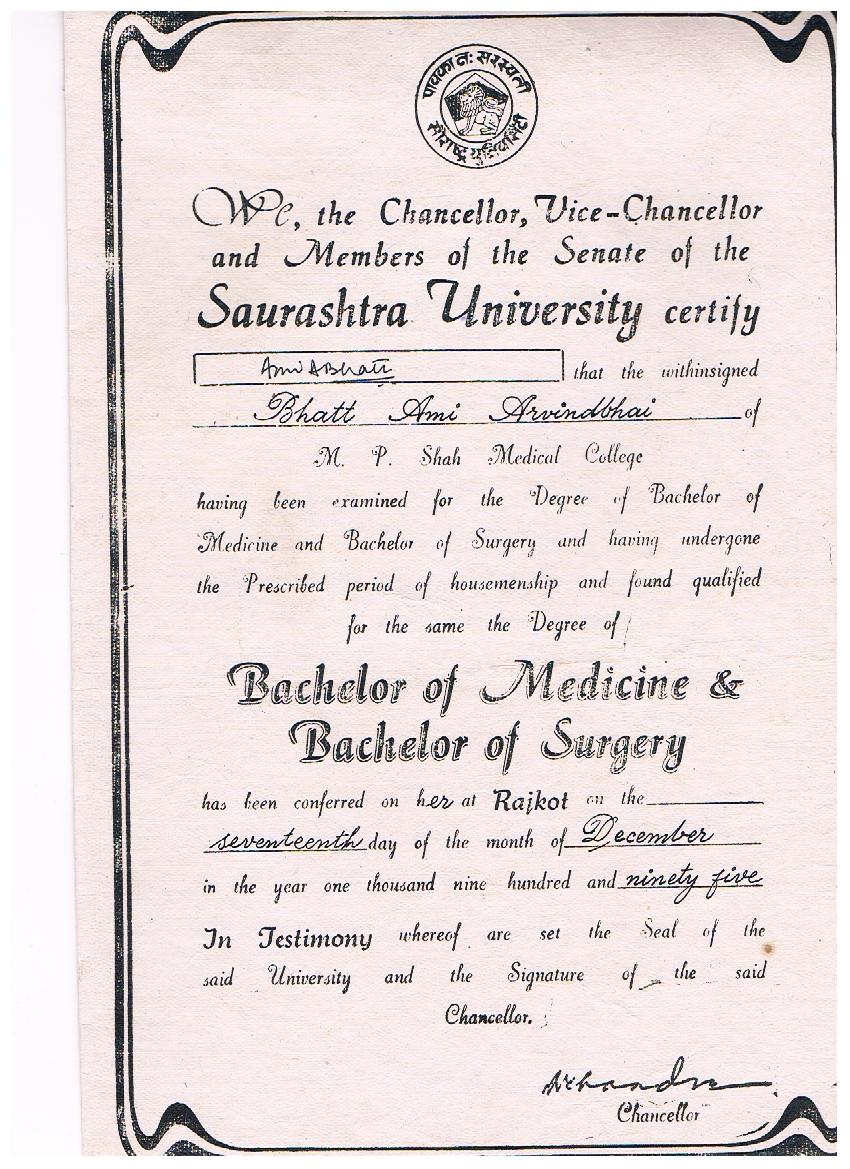 पावका नः सरस्वती
सौराष्ट्र युनिवर्सिटी
We, the Chancellor, Vice-Chancellor
and Members of the Senate of the
Saurashtra University certify
Ami A Bhatt that the withinsigned
Bhatt Ami Arvindbhai of
M. P. Shah Medical College
having been examined for the Degree of Bachelor of
Medicine and Bachelor of Surgery and having undergone
the Prescribed period of housemenship and found qualified
for the same the Degree of
Bachelor of Medicine &
Bachelor of Surgery
has been conferred on her at Rajkot on the
seventeenth day of the month of December
in the year one thousand nine hundred and ninety five
In Testimony whereof are set the Seal of the
said University and the Signature of the said
Chancellor.
Chancellor